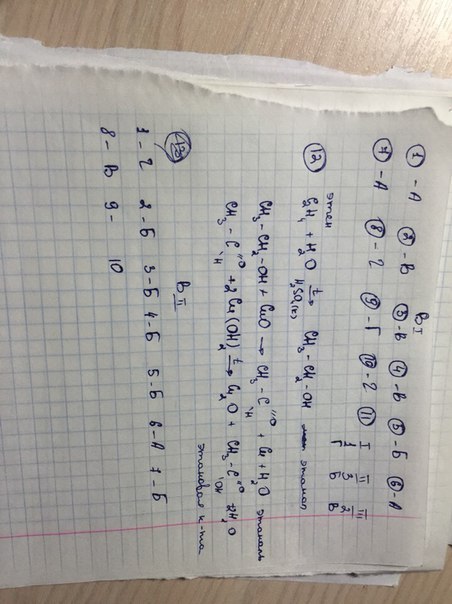 В I
① - А ② - В ③ - В ④ - В ⑤ - Б ⑥ - А
⑦ - А ⑧ - 2 ⑨ - Г ⑩ - 2 ⑪ I II III
1 3 2
Г Б В
⑫ C₂H₄ + H₂O →(t, H₂SO₄(к)) CH₃-CH₂-OH этанол
этен
CH₃-CH₂-OH + CuO → CH₃-C(=O)H + Cu + H₂O этаналь
CH₃-C(=O)H + 2Cu(OH)₂ →(t) Cu₂O + CH₃-C(=O)OH + 2H₂O
этановая к-та
В II
1 - 2 2 - Б 3 - Б 4 - Б 5 - Б 6 - А 7 - Б
8 - В 9 - 10